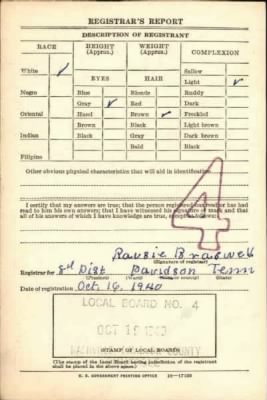 REGISTRAR'S REPORT
DESCRIPTION OF REGISTRANT
RACE HEIGHT (Approx.) WEIGHT (Approx.) COMPLEXION
White ✓ Sallow
EYES HAIR Light ✓
Negro Blue Blonde Ruddy
Gray ✓ Red Dark
Oriental Hazel Brown ✓ Freckled
Brown Black Light brown
Indian Black Gray Dark brown
Bald Black
Filipino
Other obvious physical characteristics that will aid in identification
4
I certify that my answers are true; that the person registered has read or has had
read to him his own answers; that I have witnessed his signature or mark and that
all of his answers of which I have knowledge are true, except as follows:
(Signature of registrar)
Registrar for Dist Davidson Tenn
(Precinct) (Ward) (State)
Date of registration Oct 16, 1940
LOCAL BOARD NO. 4
OCT 16
COUNTY
(STAMP OF LOCAL BOARD)
(The stamp of the Local Board having jurisdiction of the registrant
shall be placed in the above space.)
U. S. GOVERNMENT PRINTING OFFICE